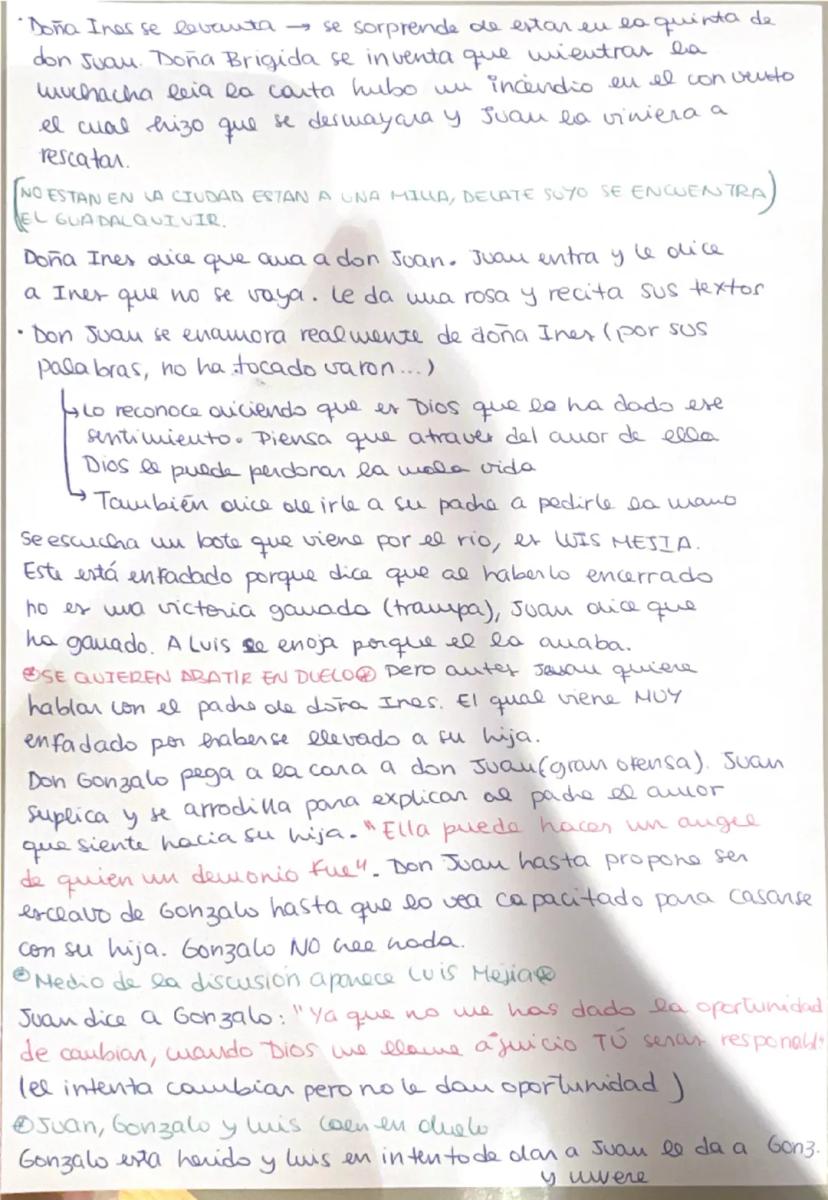 · Doña Ines se levanta → se sorprende de estar en la quinta de
don Juan. Doña Brigida se inventa que mientras la
muchacha leia la carta hubo un incendio en el convento
el cual hizo que se desmayara y Juan la viniera a
rescatar.
(NO ESTAN EN LA CIUDAD ESTAN A UNA MILLA, DELATE SUYO SE ENCUENTRA)
EL GUADALQUIVIR.
Doña Ines dice que ama a don Juan. Juan entra y le dice
a Ines que no se vaya. Le da una rosa y recita sus textos
· Don Juan se enamora realmente de doña Ines (por sus
palabras, no ha tocado varon...)
↳ Lo reconoce diciendo que es Dios que le ha dado ese
sentimiento. Piensa que atraves del amor de ella
Dios le puede perdonar la mala vida
↳ También dice de irle a su padre a pedirle la mano
Se escucha un bote que viene por el río, es LUIS MEJIA.
Este está enfadado porque dice que al haberlo encerrado
no es una victoria ganada (trampa), Juan dice que
ha ganado. A Luis se enoja porque el la amaba.
SE QUIEREN ABATIR EN DUELO Pero antes Juan quiere
hablar con el padre de doña Ines. El qual viene MUY
enfadado por haberse llevado a su hija.
Don Gonzalo pega a la cara a don Juan (gran ofensa). Juan
suplica y se arrodilla para explicar al padre el amor
que siente hacia su hija. "Ella puede hacer un angel
de quien un demonio fue". Don Juan hasta propone ser
esclavo de Gonzalo hasta que lo vea capacitado para casarse
con su hija. Gonzalo NO cree nada.
Medio de la discusión aparece Luis Mejia
Juan dice a Gonzalo: "Ya que no me has dado la oportunidad
de cambiar, cuando Dios me llame a juicio TÚ seras responabl"
(el intenta cambiar pero no le dan oportunidad)
Juan, Gonzalo y Luis caen en duelo
Gonzalo esta herido y Luis en intento de dar a Juan le da a Gonz.
y muere